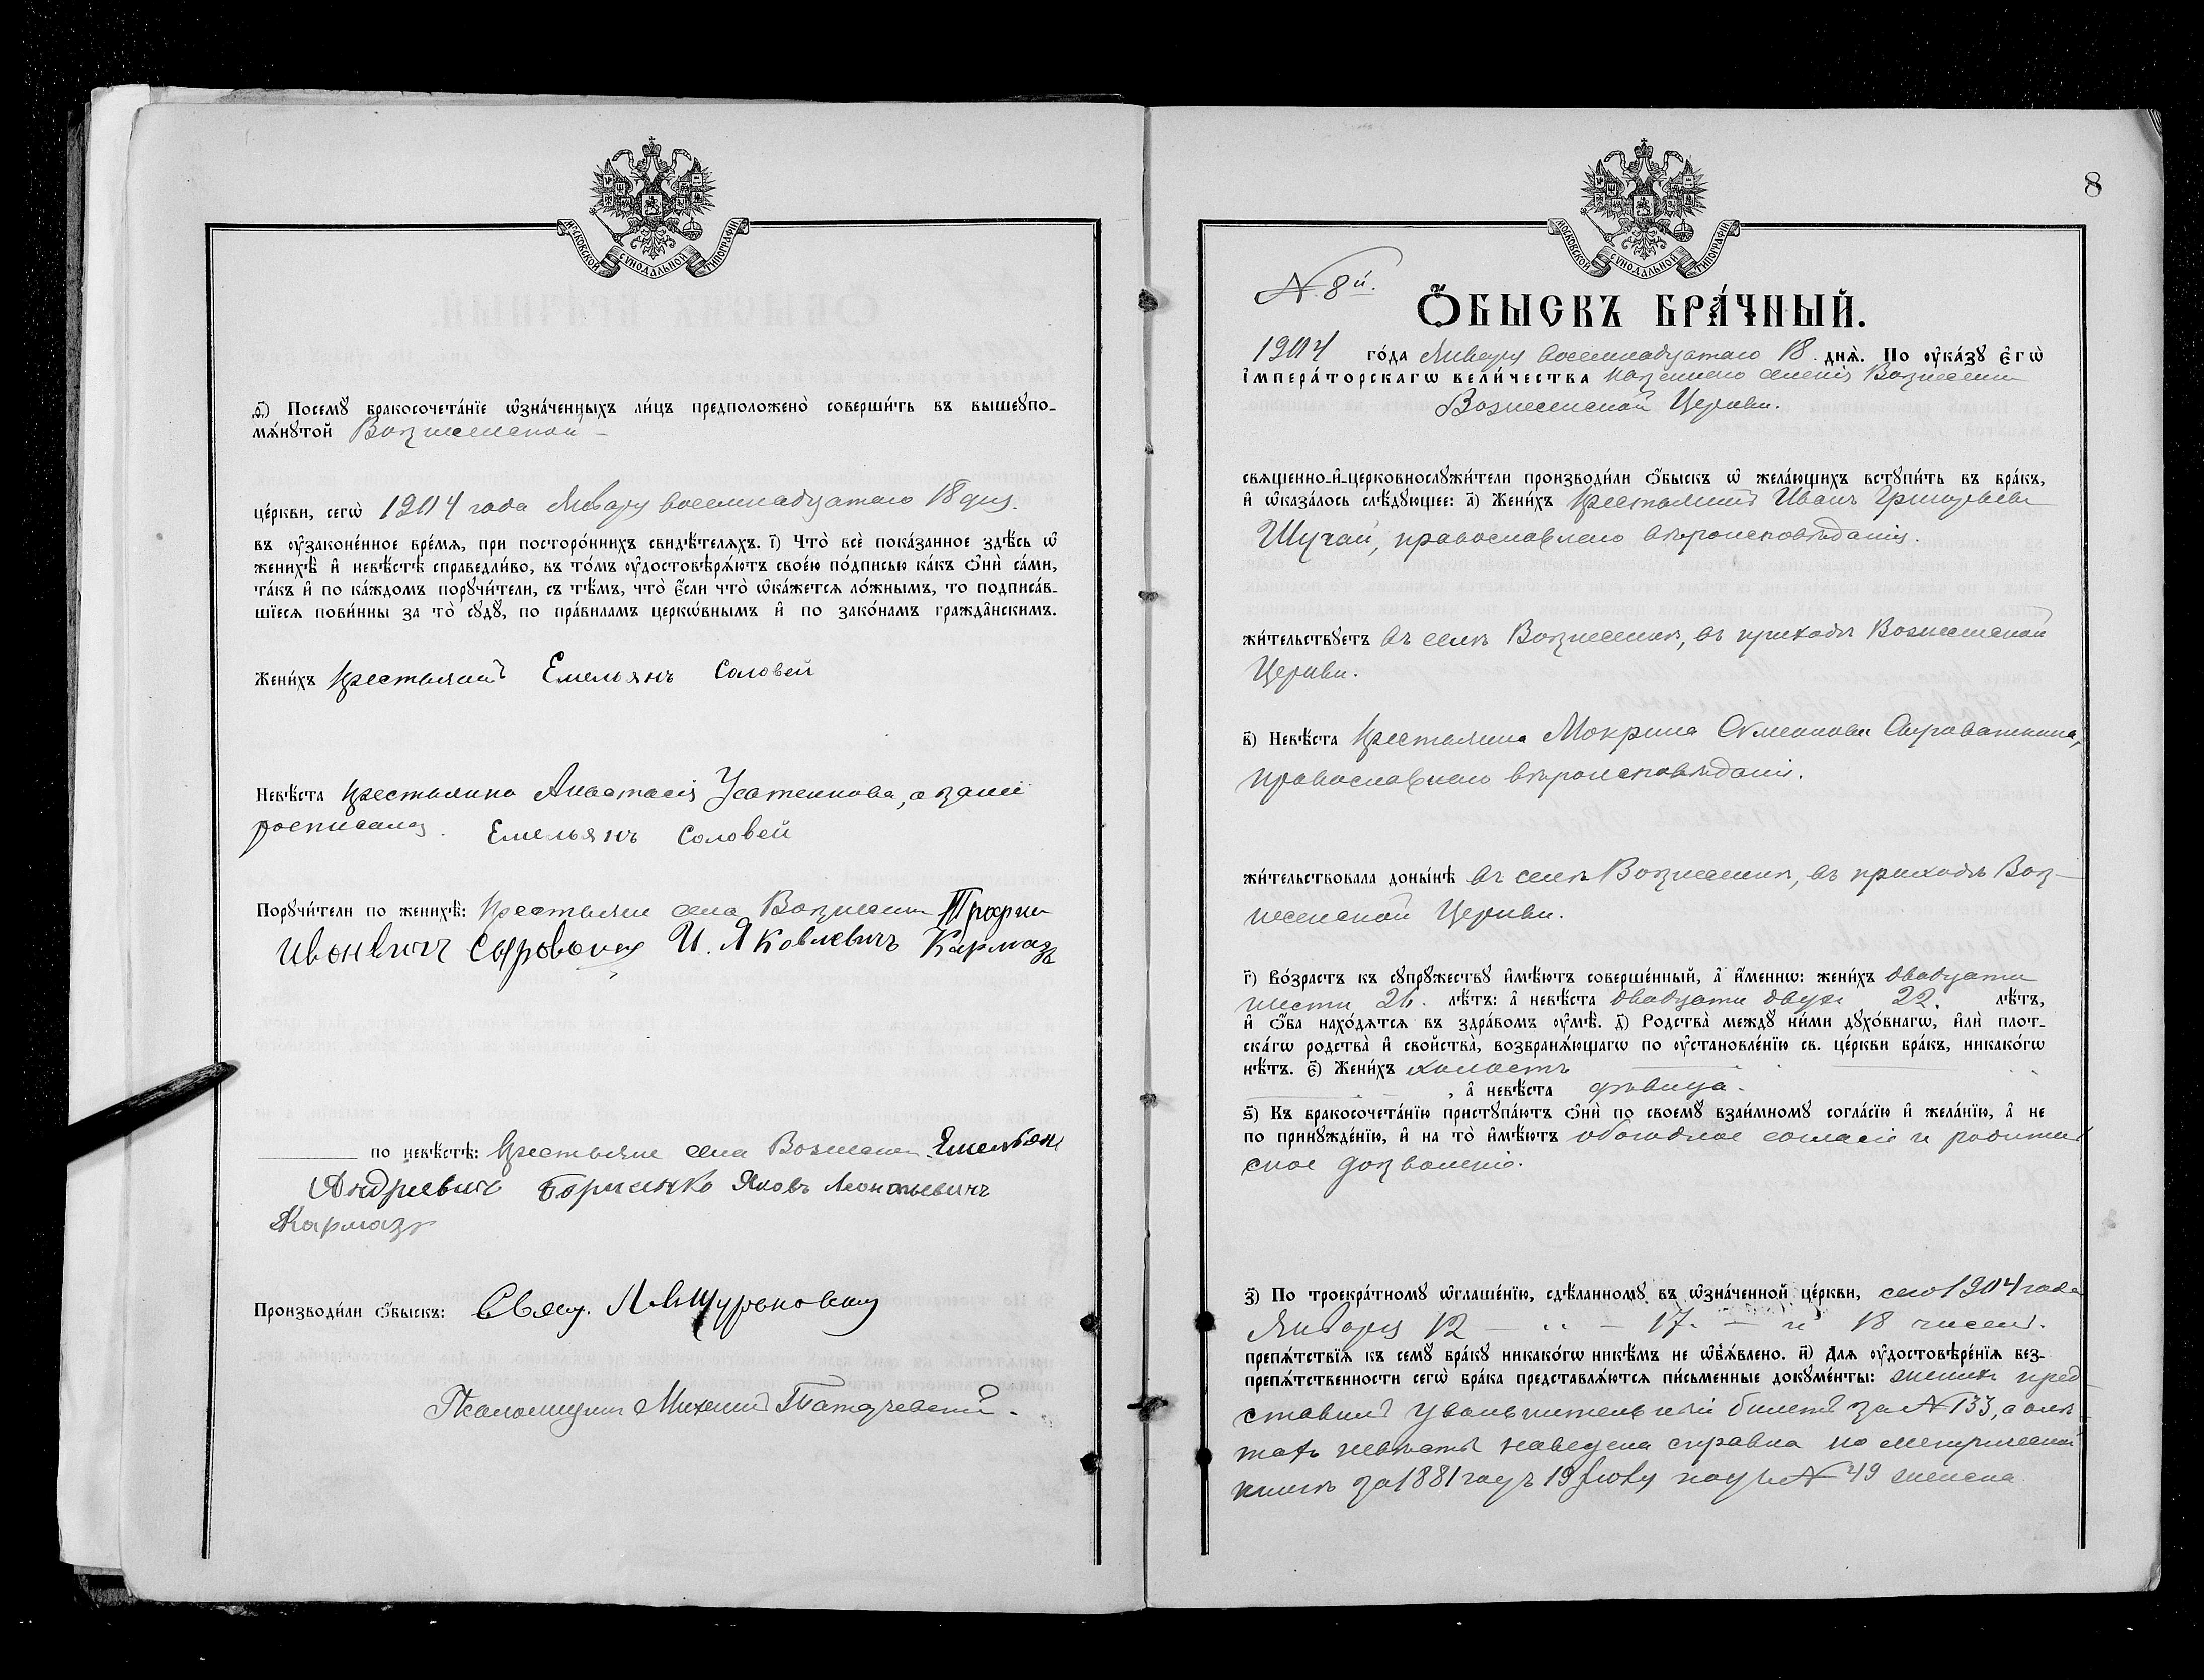 МОСКОВСКОЙ СѴНОДАЛЬНОЙ ТИПОГРАФІИ
ѳ҃) Посемꙋ бракосочета́нїе ѡ҆зна́ченныхъ ли́цъ предположено̀ соверши́ть въ вышеꙋпо-
мѧ́нꙋтой Вознесенской
це́ркви, сегѡ̀ 1904 года Января восемнадцатаго 18 дня.
въ ᲂу҆зако́ненное вре́мѧ, при посторо́ннихъ свидѣ́телѧхъ. і҃) Что̀ всѐ пока́занное здѣ́сь ѡ҆
женихѣ̀ и҆ невѣ́стѣ справедли́во, въ то́мъ ᲂу҆достовѣрѧ́ютъ свое́ю по́дписью ка́къ ѻ҆нѝ са́ми,
та́къ и҆ по ка́ждомъ порꙋчи́тели, съ тѣ́мъ, что̀ є҆́сли что̀ ѡ҆ка́жетсѧ ло́жнымъ, то подписа́в-
шїесѧ пови́нны за то̀ сꙋдꙋ̀, по пра́виламъ церко́внымъ и҆ по зако́намъ гражда̑нскимъ.
Жени́хъ крестьянинъ Емельянъ Соловей
Невѣ́ста крестьянка Анастасія Усатенкова, а за ней
росписался Емельянъ Соловей
Порꙋчи́тели по женихѣ̀: крестьяне села Вознесенки Трофим
Ивонвичъ И. Яковлевичъ Кармазъ
по невѣ́стѣ: Крестьяне села Вознесенки Емельян
Андриевичъ Борисенко Яковъ Леонтьевичъ
Кармазъ
Производи́ли ѻ҆́быскъ: Свящ.
Псаломщикъ Михаилъ
МОСКОВСКОЙ СѴНОДАЛЬНОЙ ТИПОГРАФІИ
8
№ 8й.
Ѻ҆́БЫСКЪ БРА́ЧНЫЙ.
1904 го́да Января восемнадцатаго 18 днѧ̀. По ᲂу҆ка́зꙋ є҆гѡ̀
і҆мпера́торскагѡ вели́чества казеннаго селенія Вознесенки
Вознесенской Церкви.
свѧщенно-и҆-церковнослꙋжи́тели производи́ли ѻ҆́быскъ ѡ҆ жела́ющихъ встꙋпи́ть въ бра́къ,
и҆ ѡ҆каза́лось слѣ́дꙋющее: а҃) Жени́хъ крестьянинъ Иванъ Григорьевъ
Шучай, православнаго вѣроисповѣданія.
жи́тельствꙋетъ въ селѣ Вознесенкѣ, въ приходѣ Вознесенской
Церкви.
в҃) Невѣ́ста крестьянка Мокрина Сыроваткина,
православнаго вѣроисповѣданія.
жи́тельствовала доны́нѣ въ селѣ Вознесенкѣ, въ приходѣ Воз-
несенской Церкви.
г҃) Во́зрастъ къ сꙋпрꙋ́жествꙋ и҆мѣ́ютъ соверше́нный, а҆ и҆́меннѡ: жени́хъ двадцати
шести 26. лѣ́тъ: а҆ невѣ́ста двадцати двухъ 22. лѣ́тъ,
и҆ ѻ҆́ба нахо́дѧтсѧ въ здра́вомъ ᲂу҆мѣ̀. д҃) Родства̀ междꙋ̀ ни́ми дꙋхо́внагѡ, и҆лѝ плот-
ска́гѡ родства̀ и҆ свойства̀, возбранѧ́ющагѡ по ᲂу҆становле́нїю св. це́ркви бра́къ, никако́гѡ
нѣ́тъ. є҃) Жени́хъ холостъ
, а҆ невѣ́ста дѣвица.
ѕ҃) Къ бракосочета́нїю пристꙋпа́ютъ ѻ҆нѝ по своемꙋ̀ взаи́мномꙋ согла́сїю и҆ жела́нїю, а҆ не
по принꙋжде́нїю, и҆ на то̀ и҆мѣ́ютъ обоюдное согласіе и родитель
ское дозволеніе.
з҃) По троекра́тномꙋ ѡ҆глаше́нїю, сдѣ́ланномꙋ въ ѡ҆зна́ченной це́ркви, сего 1904 года
Января 12 — " — 17. — и 18 чиселъ.
препѧ́тствїѧ къ семꙋ̀ бра́кꙋ никако́гѡ никѣ́мъ не ѡ҆б̾ѧ́влено. и҃) Длѧ ᲂу҆достовѣре́нїѧ без-
препѧ́тственности сегѡ̀ бра́ка представлѧ́ютсѧ пи́сьменные докꙋме́нты: женихъ пред-
ставилъ увольнительный билетъ за № 133, а о лѣ-
тахъ невѣсты наведена справка по метрической
книгѣ за 1881 годъ 19 подъ № 49 женска